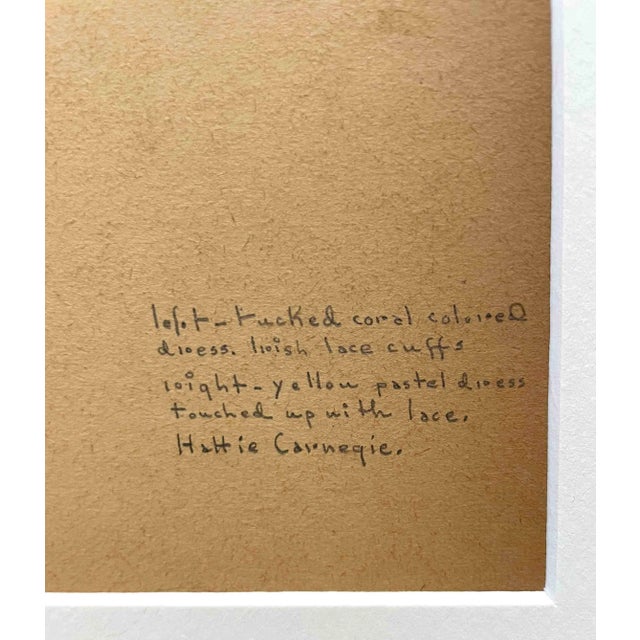 left - tucked coral colored
dress. Irish lace cuffs
right - yellow pastel dress
touched up with lace.
Hattie Carnegie.